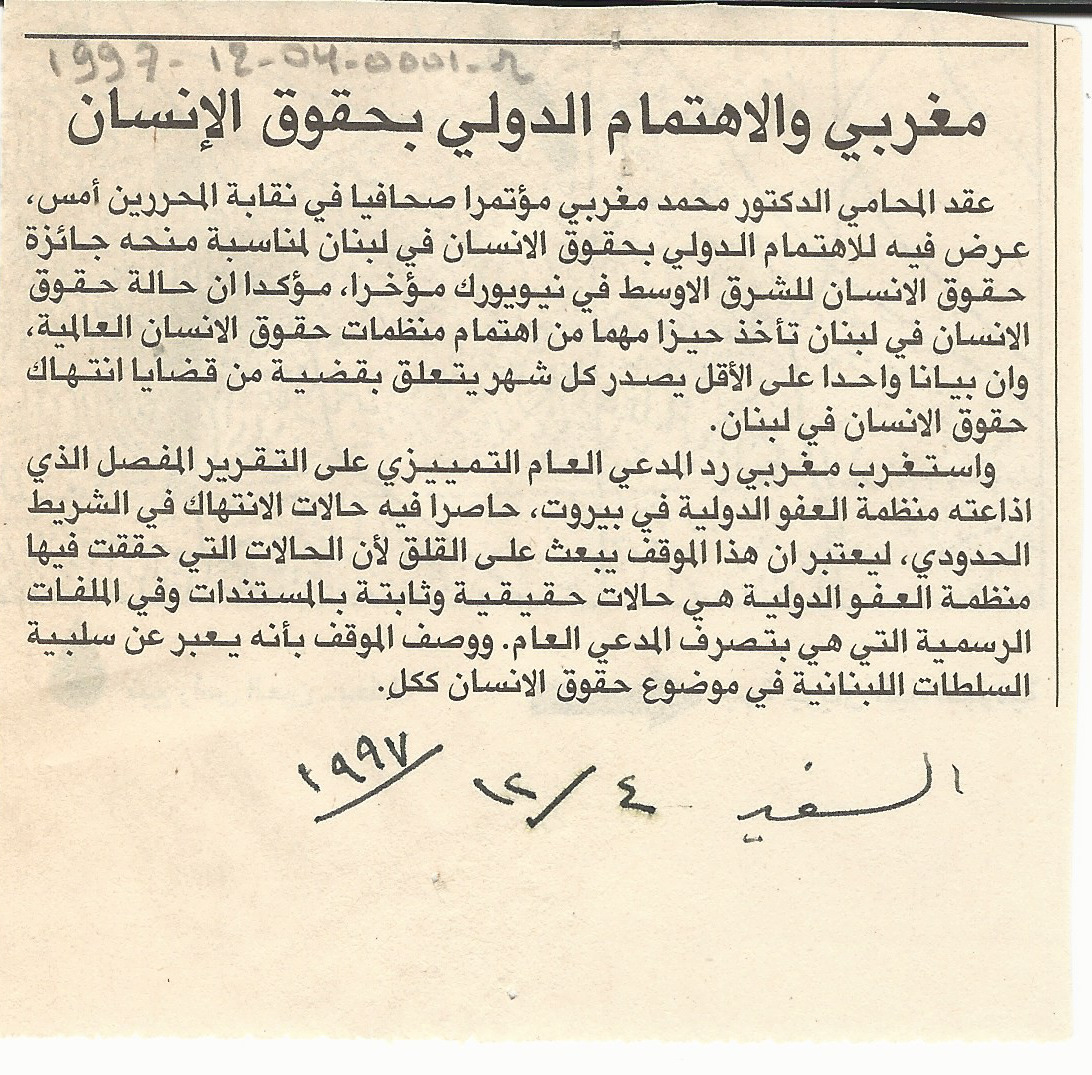 1997-12-04-0001-R
مغربي والاهتمام الدولي بحقوق الإنسان
عقد المحامي الدكتور محمد مغربي مؤتمرا صحافيا في نقابة المحررين أمس،
عرض فيه للاهتمام الدولي بحقوق الانسان في لبنان لمناسبة منحه جائزة
حقوق الانسان للشرق الاوسط في نيويورك مؤخرا، مؤكدا ان حالة حقوق
الانسان في لبنان تأخذ حيزا مهما من اهتمام منظمات حقوق الانسان العالمية،
وان بيانا واحدا على الأقل يصدر كل شهر يتعلق بقضية من قضايا انتهاك
حقوق الانسان في لبنان.
واستغرب مغربي رد المدعي العام التمييزي على التقرير المفصل الذي
اذاعته منظمة العفو الدولية في بيروت، حاصرا فيه حالات الانتهاك في الشريط
الحدودي، ليعتبر ان هذا الموقف يبعث على القلق لأن الحالات التي حققت فيها
منظمة العفو الدولية هي حالات حقيقية وثابتة بالمستندات وفي الملفات
الرسمية التي هي بتصرف المدعي العام. ووصف الموقف بأنه يعبر عن سلبية
السلطات اللبنانية في موضوع حقوق الانسان ككل.
السفير ٤/١٢/١٩٩٧